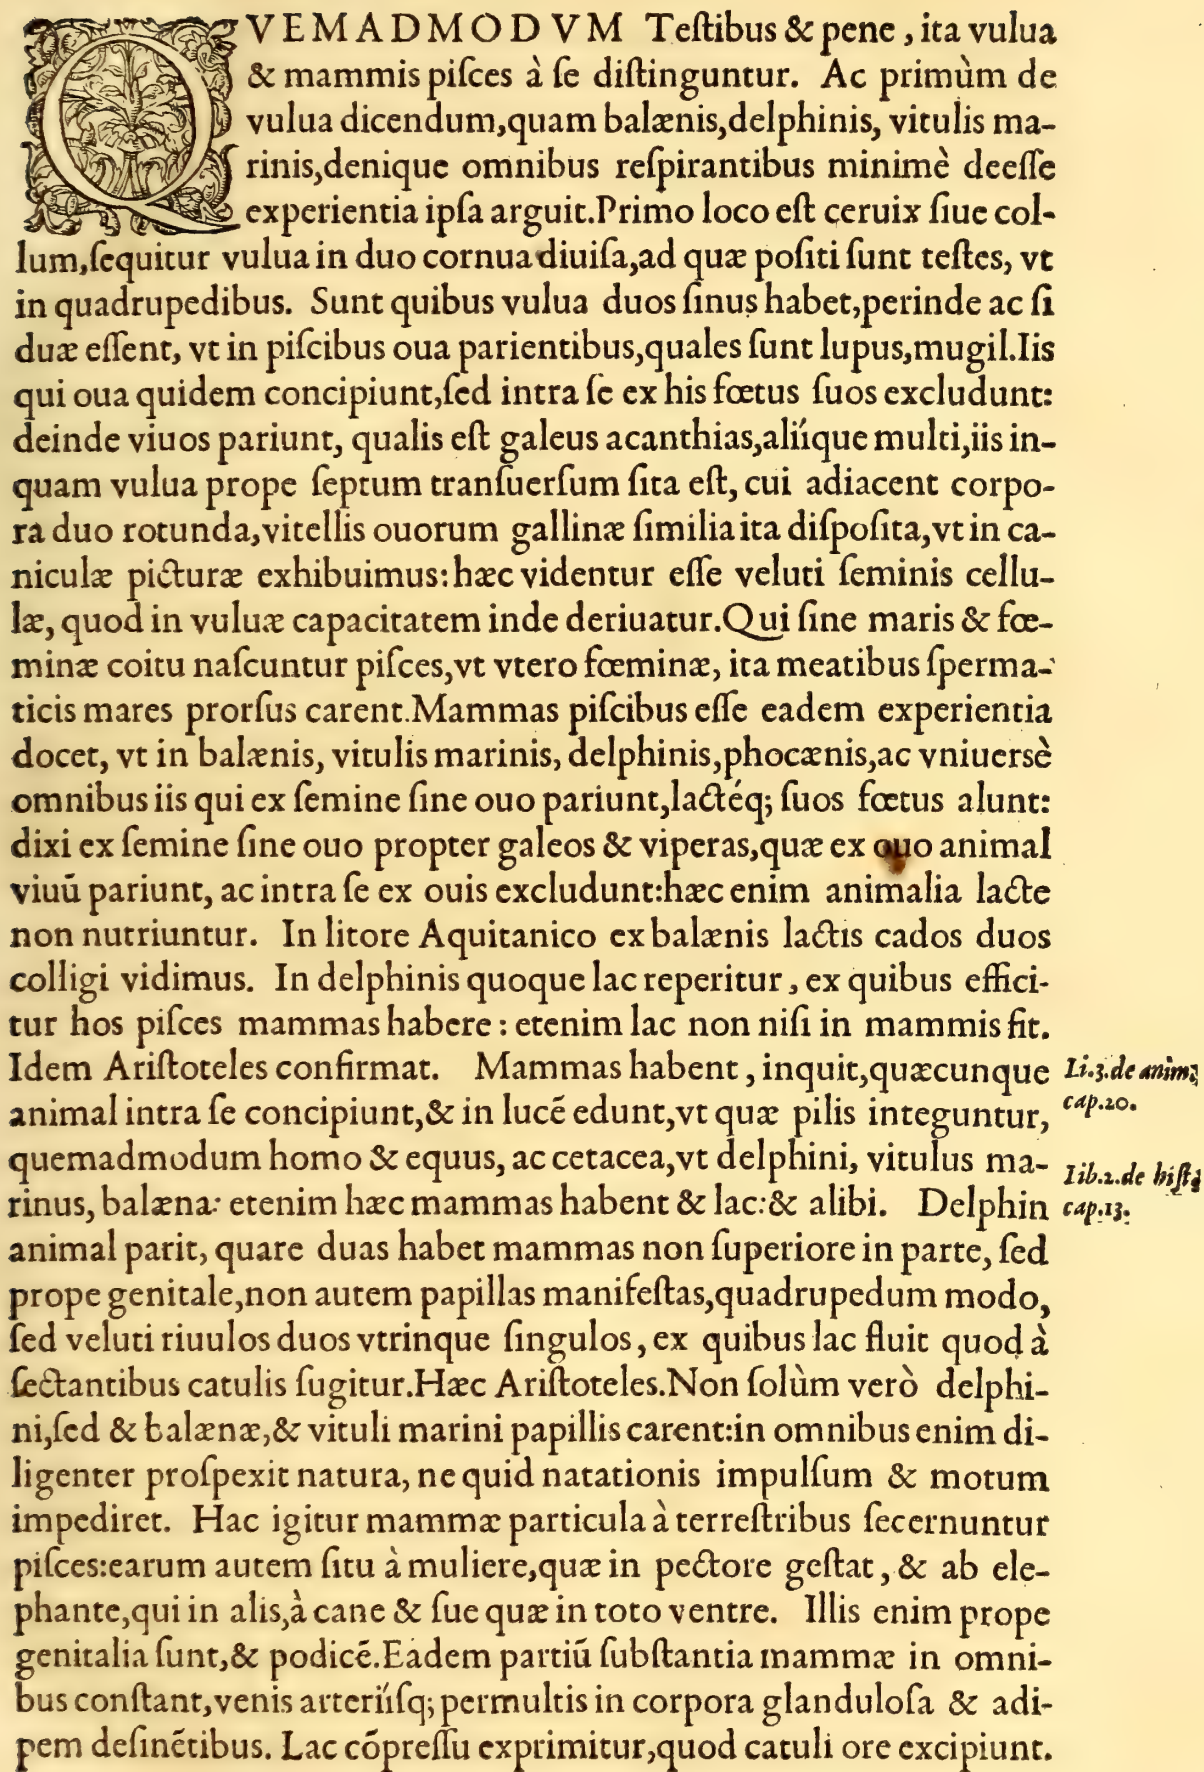 QVEMADMODVM Teſtibus & pene, ita vulua
& mammis piſces à ſe diſtinguntur. Ac primùm de
vulua dicendum, quam balænis, delphinis, vitulis ma-
rinis, denique omnibus reſpirantibus minimè deeſſe
experientia ipſa arguit. Primo loco eſt ceruix ſiue col-
lum, ſequitur vulua in duo cornua diuiſa, ad quæ poſiti ſunt teſtes, vt
in quadrupedibus. Sunt quibus vulua duos ſinus habet, perinde ac ſi
duæ eſſent, vt in piſcibus oua parientibus, quales ſunt lupus, mugil. Iis
qui oua quidem concipiunt, ſed intra ſe ex his fœtus ſuos excludunt:
deinde viuos pariunt, qualis eſt galeus acanthias, aliíque multi, iis in-
quam vulua prope ſeptum tranſuerſum ſita eſt, cui adiacent corpo-
ra duo rotunda, vitellis ouorum gallinæ ſimilia ita diſpoſita, vt in ca-
niculæ picturæ exhibuimus: hæc videntur eſſe veluti ſeminis cellu-
læ, quod in vuluæ capacitatem inde deriuatur. Qui ſine maris & fœ-
minæ coitu naſcuntur piſces, vt vtero fœminæ, ita meatibus ſperma-
ticis mares prorſus carent. Mammas piſcibus eſſe eadem experientia
docet, vt in balænis, vitulis marinis, delphinis, phocænis, ac vniuersè
omnibus iis qui ex ſemine ſine ouo pariunt, lactéq; ſuos fœtus alunt:
dixi ex ſemine ſine ouo propter galeos & viperas, quæ ex ouo animal
viuū pariunt, ac intra ſe ex ouis excludunt: hæc enim animalia lacte
non nutriuntur. In litore Aquitanico ex balænis lactis cados duos
colligi vidimus. In delphinis quoque lac reperitur, ex quibus effici-
tur hos piſces mammas habere: etenim lac non niſi in mammis fit.
Idem Ariſtoteles confirmat. Mammas habent, inquit, quæcunque
Li.3. de anim.
animal intra ſe concipiunt, & in lucē edunt, vt quæ pilis integuntur,
cap.20.
quemadmodum homo & equus, ac cetacea, vt delphini, vitulus ma-
Lib.2. de hiſt.
rinus, balæna: etenim hæc mammas habent & lac: & alibi. Delphin
cap.13.
animal parit, quare duas habet mammas non ſuperiore in parte, ſed
prope genitale, non autem papillas manifeſtas, quadrupedum modo,
ſed veluti riuulos duos vtrinque ſingulos, ex quibus lac fluit quod à
ſectantibus catulis ſugitur. Hæc Ariſtoteles. Non ſolùm verò delphi-
ni, ſed & balænæ, & vituli marini papillis carent: in omnibus enim di-
ligenter proſpexit natura, ne quid natationis impulſum & motum
impediret. Hac igitur mammæ particula à terreſtribus ſecernuntur
piſces: earum autem ſitu à muliere, quæ in pectore geſtat, & ab ele-
phante, qui in alis, à cane & ſue quæ in toto ventre. Illis enim prope
genitalia ſunt, & podicē. Eadem partiū ſubſtantia mammæ in omni-
bus conſtant, venis arteriíſq; permultis in corpora glanduloſa & adi-
pem deſinētibus. Lac cōpreſſu exprimitur, quod catuli ore excipiunt.